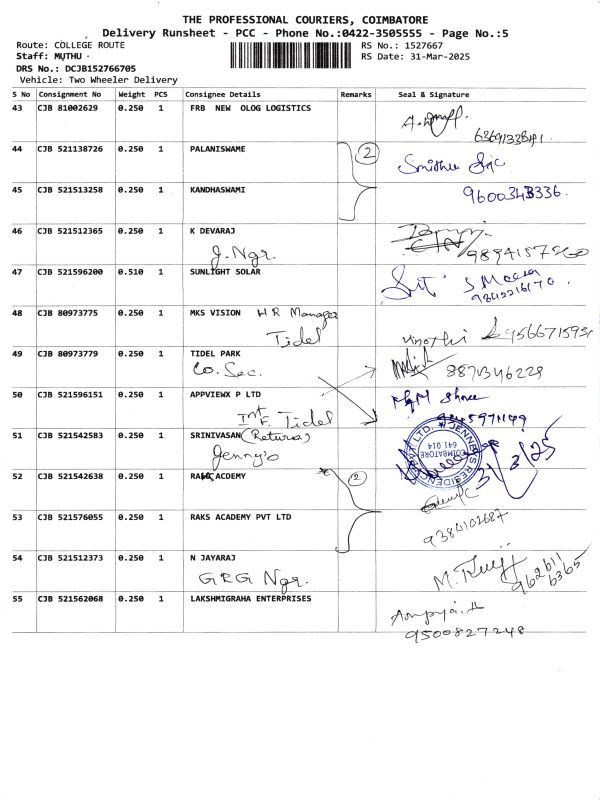 THE PROFESSIONAL COURIERS, COIMBATORE
Delivery Runsheet - PCC - Phone No.:0422-3505555 - Page No.:5
Route: COLLEGE ROUTE RS No.: 1527667
Staff: MUTHU RS Date: 31-Mar-2025
DRS No.: DCJB152766705
Vehicle: Two Wheeler Delivery
S No Consignment No Weight PCS Consignee Details Remarks Seal & Signature
43 CJB 81002629 0.250 1 FRB NEW OLOG LOGISTICS
44 CJB 521138726 0.250 1 PALANISWAME 2
45 CJB 521513258 0.250 1 KANDHASWAMI
46 CJB 521512365 0.250 1 K DEVARAJ
J. Ngr.
47 CJB 521596200 0.510 1 SUNLIGHT SOLAR
48 CJB 80973775 0.250 1 MKS VISION HR Manager
Tidel
49 CJB 80973779 0.250 1 TIDEL PARK
Co. Sec. 8870346229
50 CJB 521596151 0.250 1 APPVIEWX P LTD
Tidel
51 CJB 521542583 0.250 1 SRINIVASAN (Returns)
Jenny's
COIMBATORE
641 014
31/3/25
52 CJB 521542638 0.250 1 ACDEMY 2
53 CJB 521576055 0.250 1 RAKS ACADEMY PVT LTD
54 CJB 521512373 0.250 1 N JAYARAJ
GRG Ngr.
55 CJB 521562068 0.250 1 LAKSHMIGRAHA ENTERPRISES
9500827248